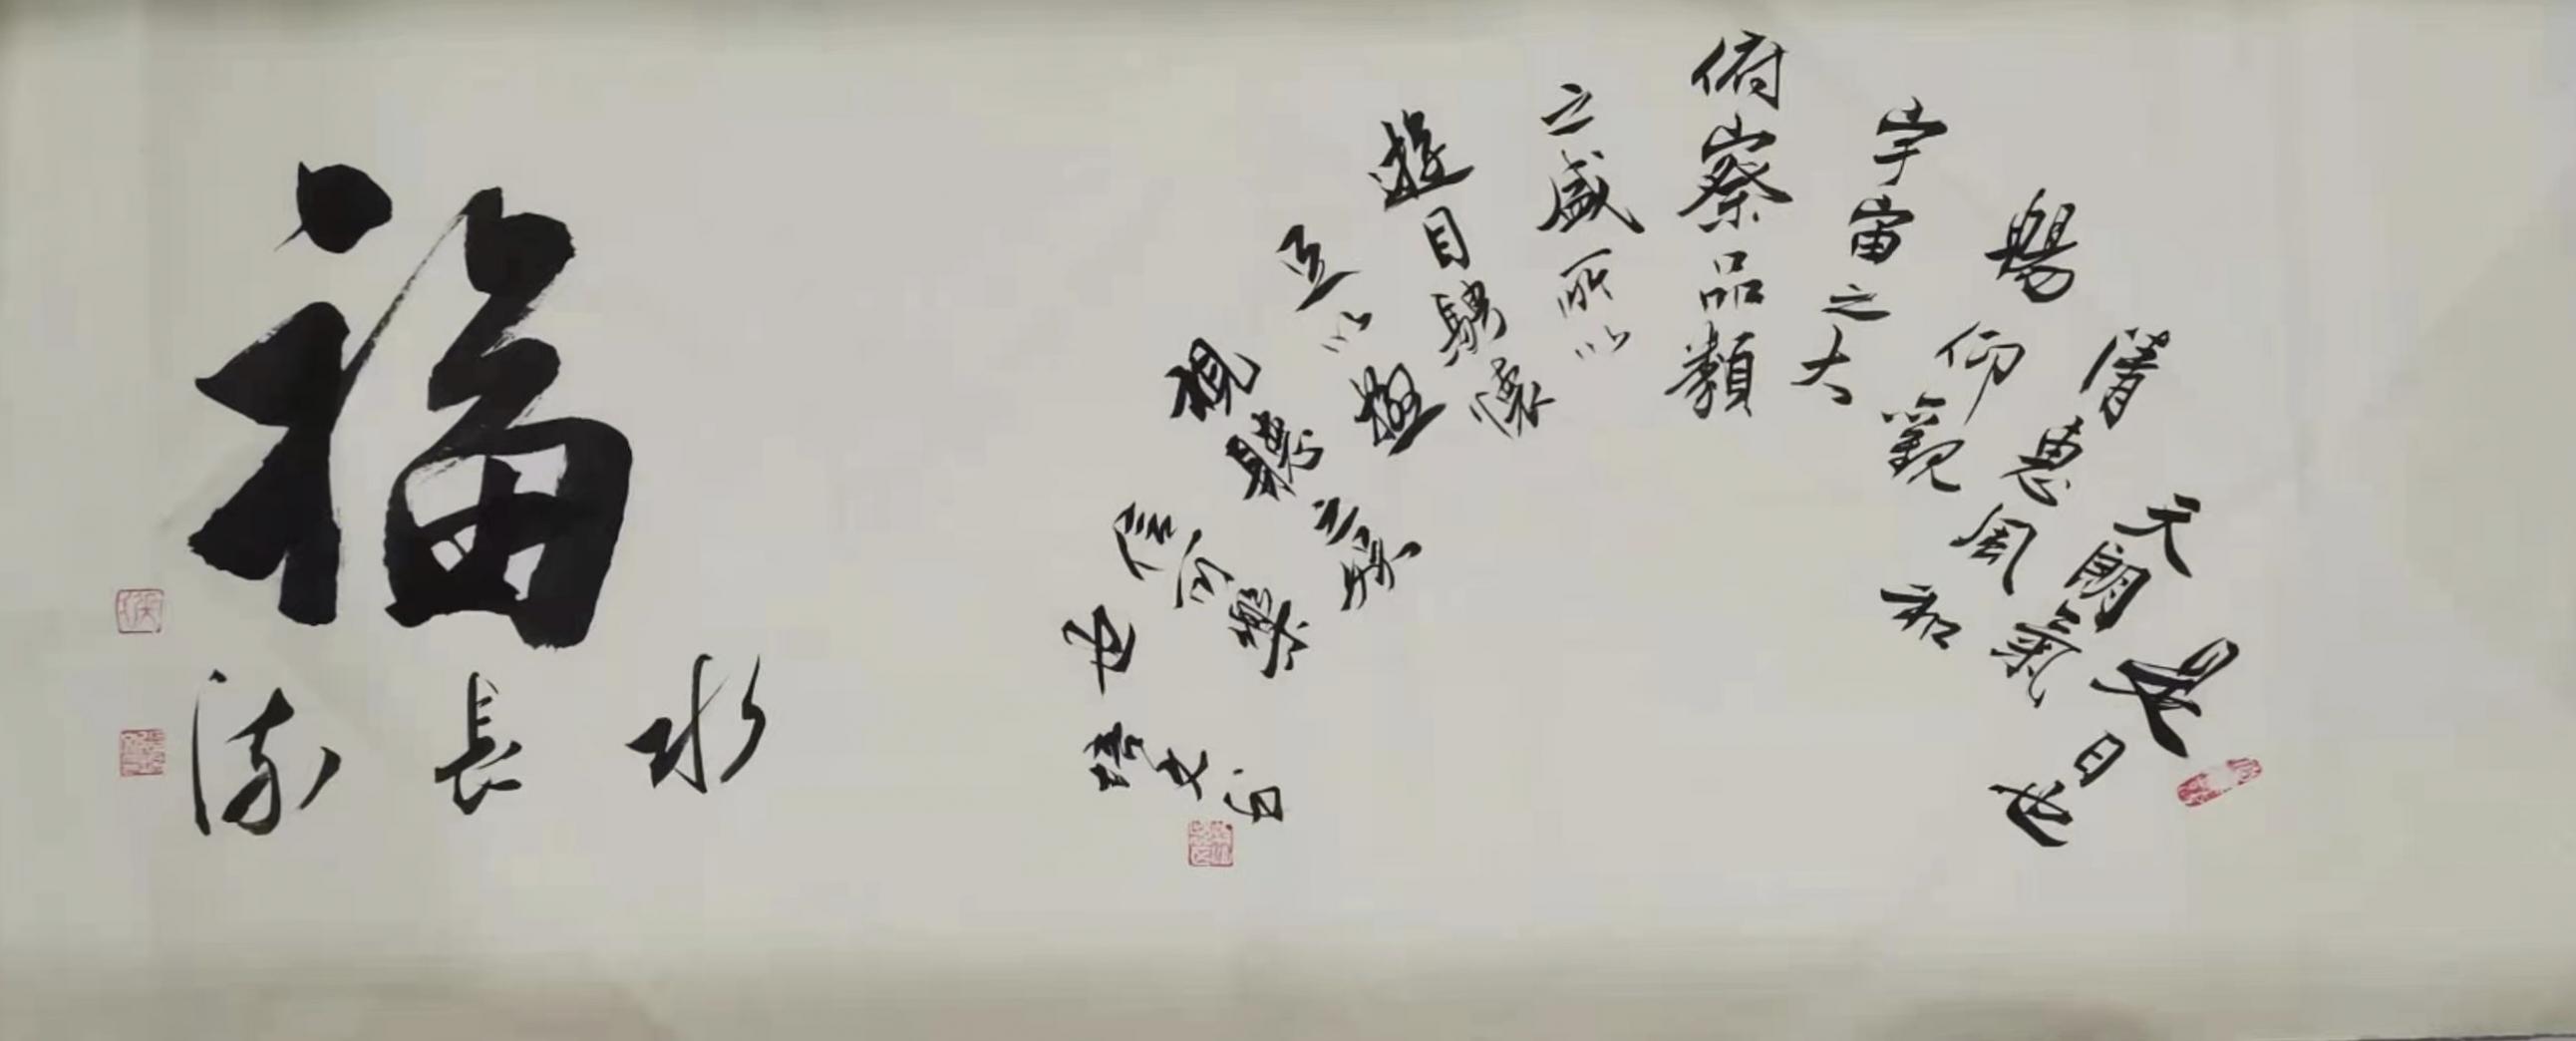 是日也
天朗氣
清惠風和
暢仰觀
宇宙之大
俯察品類
之盛所以
遊目騁懷
足以極
視聽之娛
信可樂
也
福
水長流